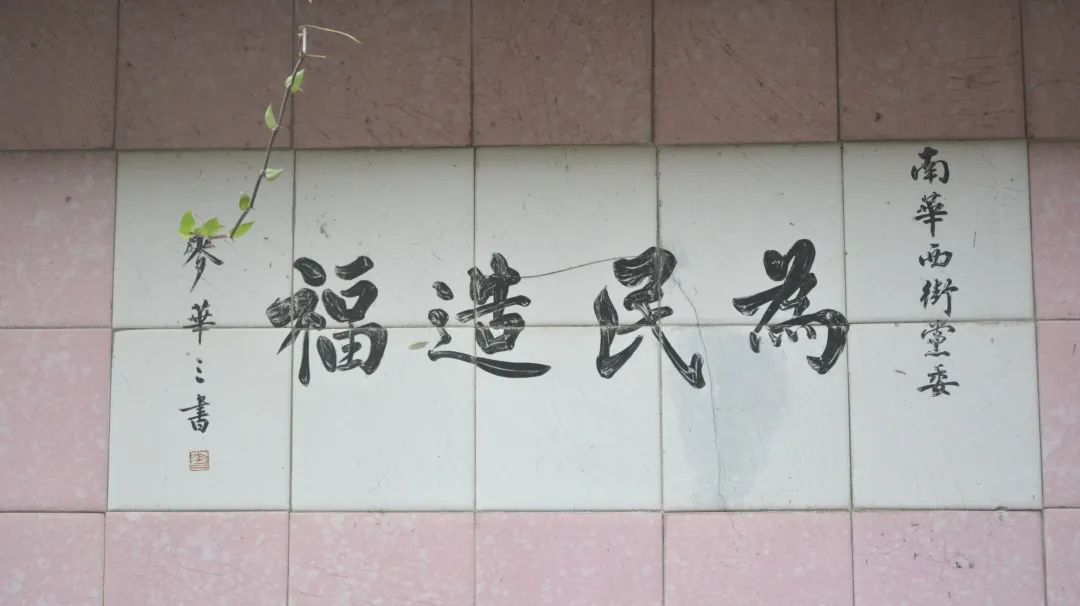 南華西街黨委
為民造福
麥華三書